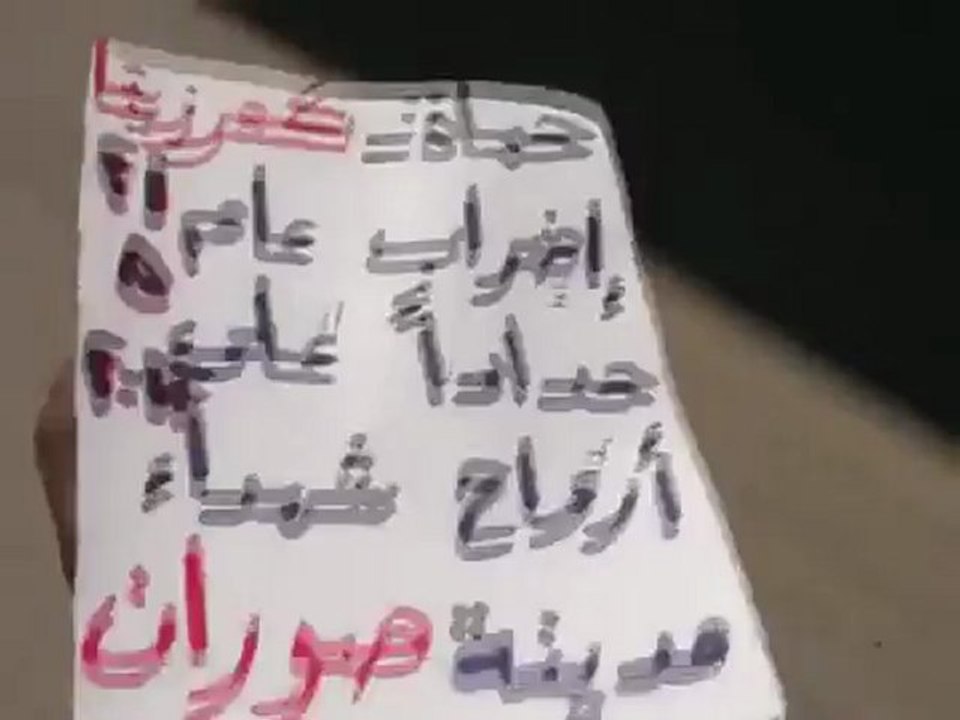 حماة:- كفرزيتا
إضراب عام ٢١
حداداً على ٥
أرواح شهداء
مدينة صوران